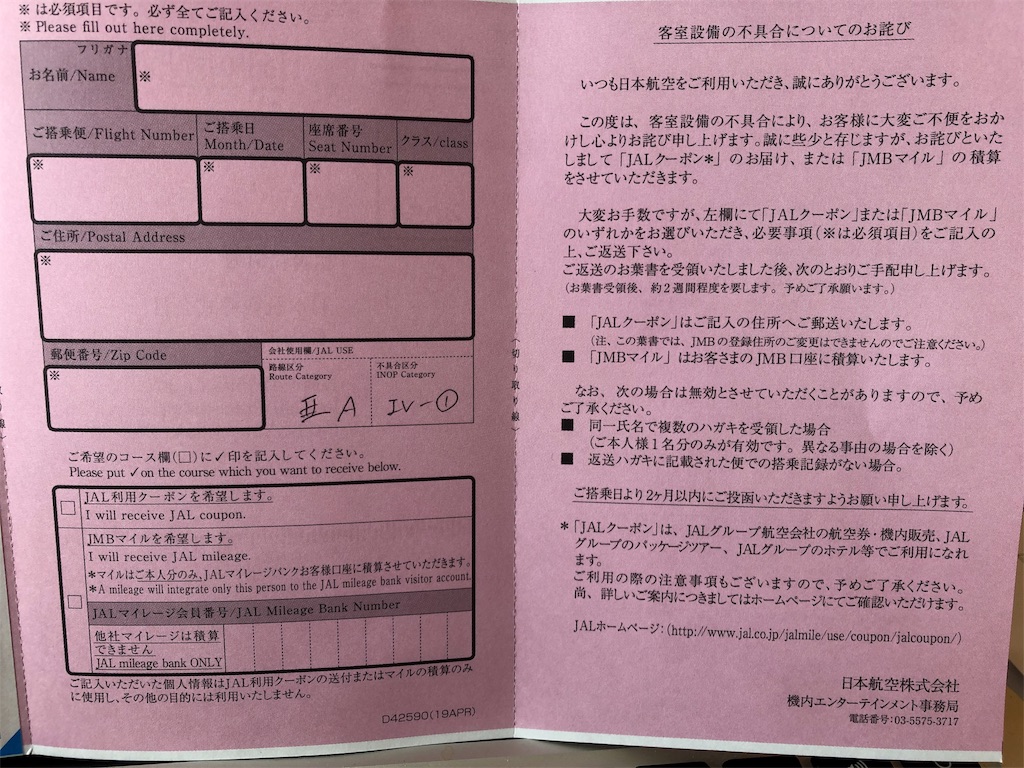 ※ は必須項目です。必ず全てご記入ください。
※ Please fill out here completely.
フリガナ
お名前/Name
※
ご搭乗便/Flight Number
ご搭乗日
Month/Date
座席番号
Seat Number
クラス/class
※
※
※
※
ご住所/Postal Address
※
郵便番号/Zip Code
※
会社使用欄/JAL USE
路線区分
Route Category
不具合区分
INOP Category
亜 A
IV-①
ご希望のコース欄(□)に✓印を記入してください。
Please put ✓on the course which you want to receive below.
JAL利用クーポンを希望します。
I will receive JAL coupon.
JMBマイルを希望します。
I will receive JAL mileage.
*マイルはご本人分のみ、JALマイレージバンクお客様口座に積算させていただきます。
*A mileage will integrate only this person to the JAL mileage bank visitor account.
JALマイレージ会員番号/JAL Mileage Bank Number
他社マイレージは積算
できません
JAL mileage bank ONLY
ご記入いただいた個人情報はJAL利用クーポンの送付またはマイルの積算のみ
に使用し、その他の目的には利用いたしません。
D42590(19APR)
(切り取り線)
客室設備の不具合についてのお詫び
いつも日本航空をご利用いただき、誠にありがとうございます。
この度は、客室設備の不具合により、お客様に大変ご不便をおか
けし心よりお詫び申し上げます。誠に些少と存じますが、お詫びといた
しまして「JALクーポン*」のお届け、または「JMBマイル」の積算
をさせていただきます。
大変お手数ですが、左欄にて「JALクーポン」または「JMBマイル」
のいずれかをお選びいただき、必要事項(※は必須項目)をご記入の
上、ご返送下さい。
ご返送のお葉書を受領いたしました後、次のとおりご手配申し上げます。
(お葉書受領後、約2週間程度を要します。予めご了承願います。)
■ 「JALクーポン」はご記入の住所へご郵送いたします。
(注、この葉書では、JMBの登録住所のご変更はできませんのでご注意ください。)
■ 「JMBマイル」はお客さまのJMB口座に積算いたします。
なお、次の場合は無効とさせていただくことがありますので、予め
ご了承ください。
■ 同一氏名で複数のハガキを受領した場合
(ご本人様1名分のみが有効です。異なる事由の場合を除く)
■ 返送ハガキに記載された便での搭乗記録がない場合。
ご搭乗日より2ヶ月以内にご投函いただきますようお願い申し上げます。
*「JALクーポン」は、JALグループ航空会社の航空券・機内販売、JAL
グループのパッケージツアー、JALグループのホテル等でご利用になれ
ます。
ご利用の際の注意事項もございますので、予めご了承ください。
尚、詳しいご案内につきましてはホームページにてご確認いただけます。
JALホームページ:(http://www.jal.co.jp/jalmile/use/coupon/jalcoupon/)
日本航空株式会社
機内エンターテインメント事務局
電話番号:03-5575-3717